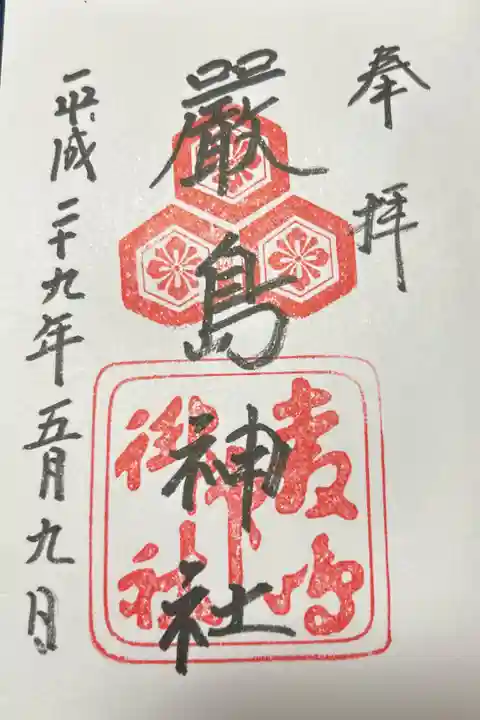 奉拝
厳島神社
平成二十九年五月九日